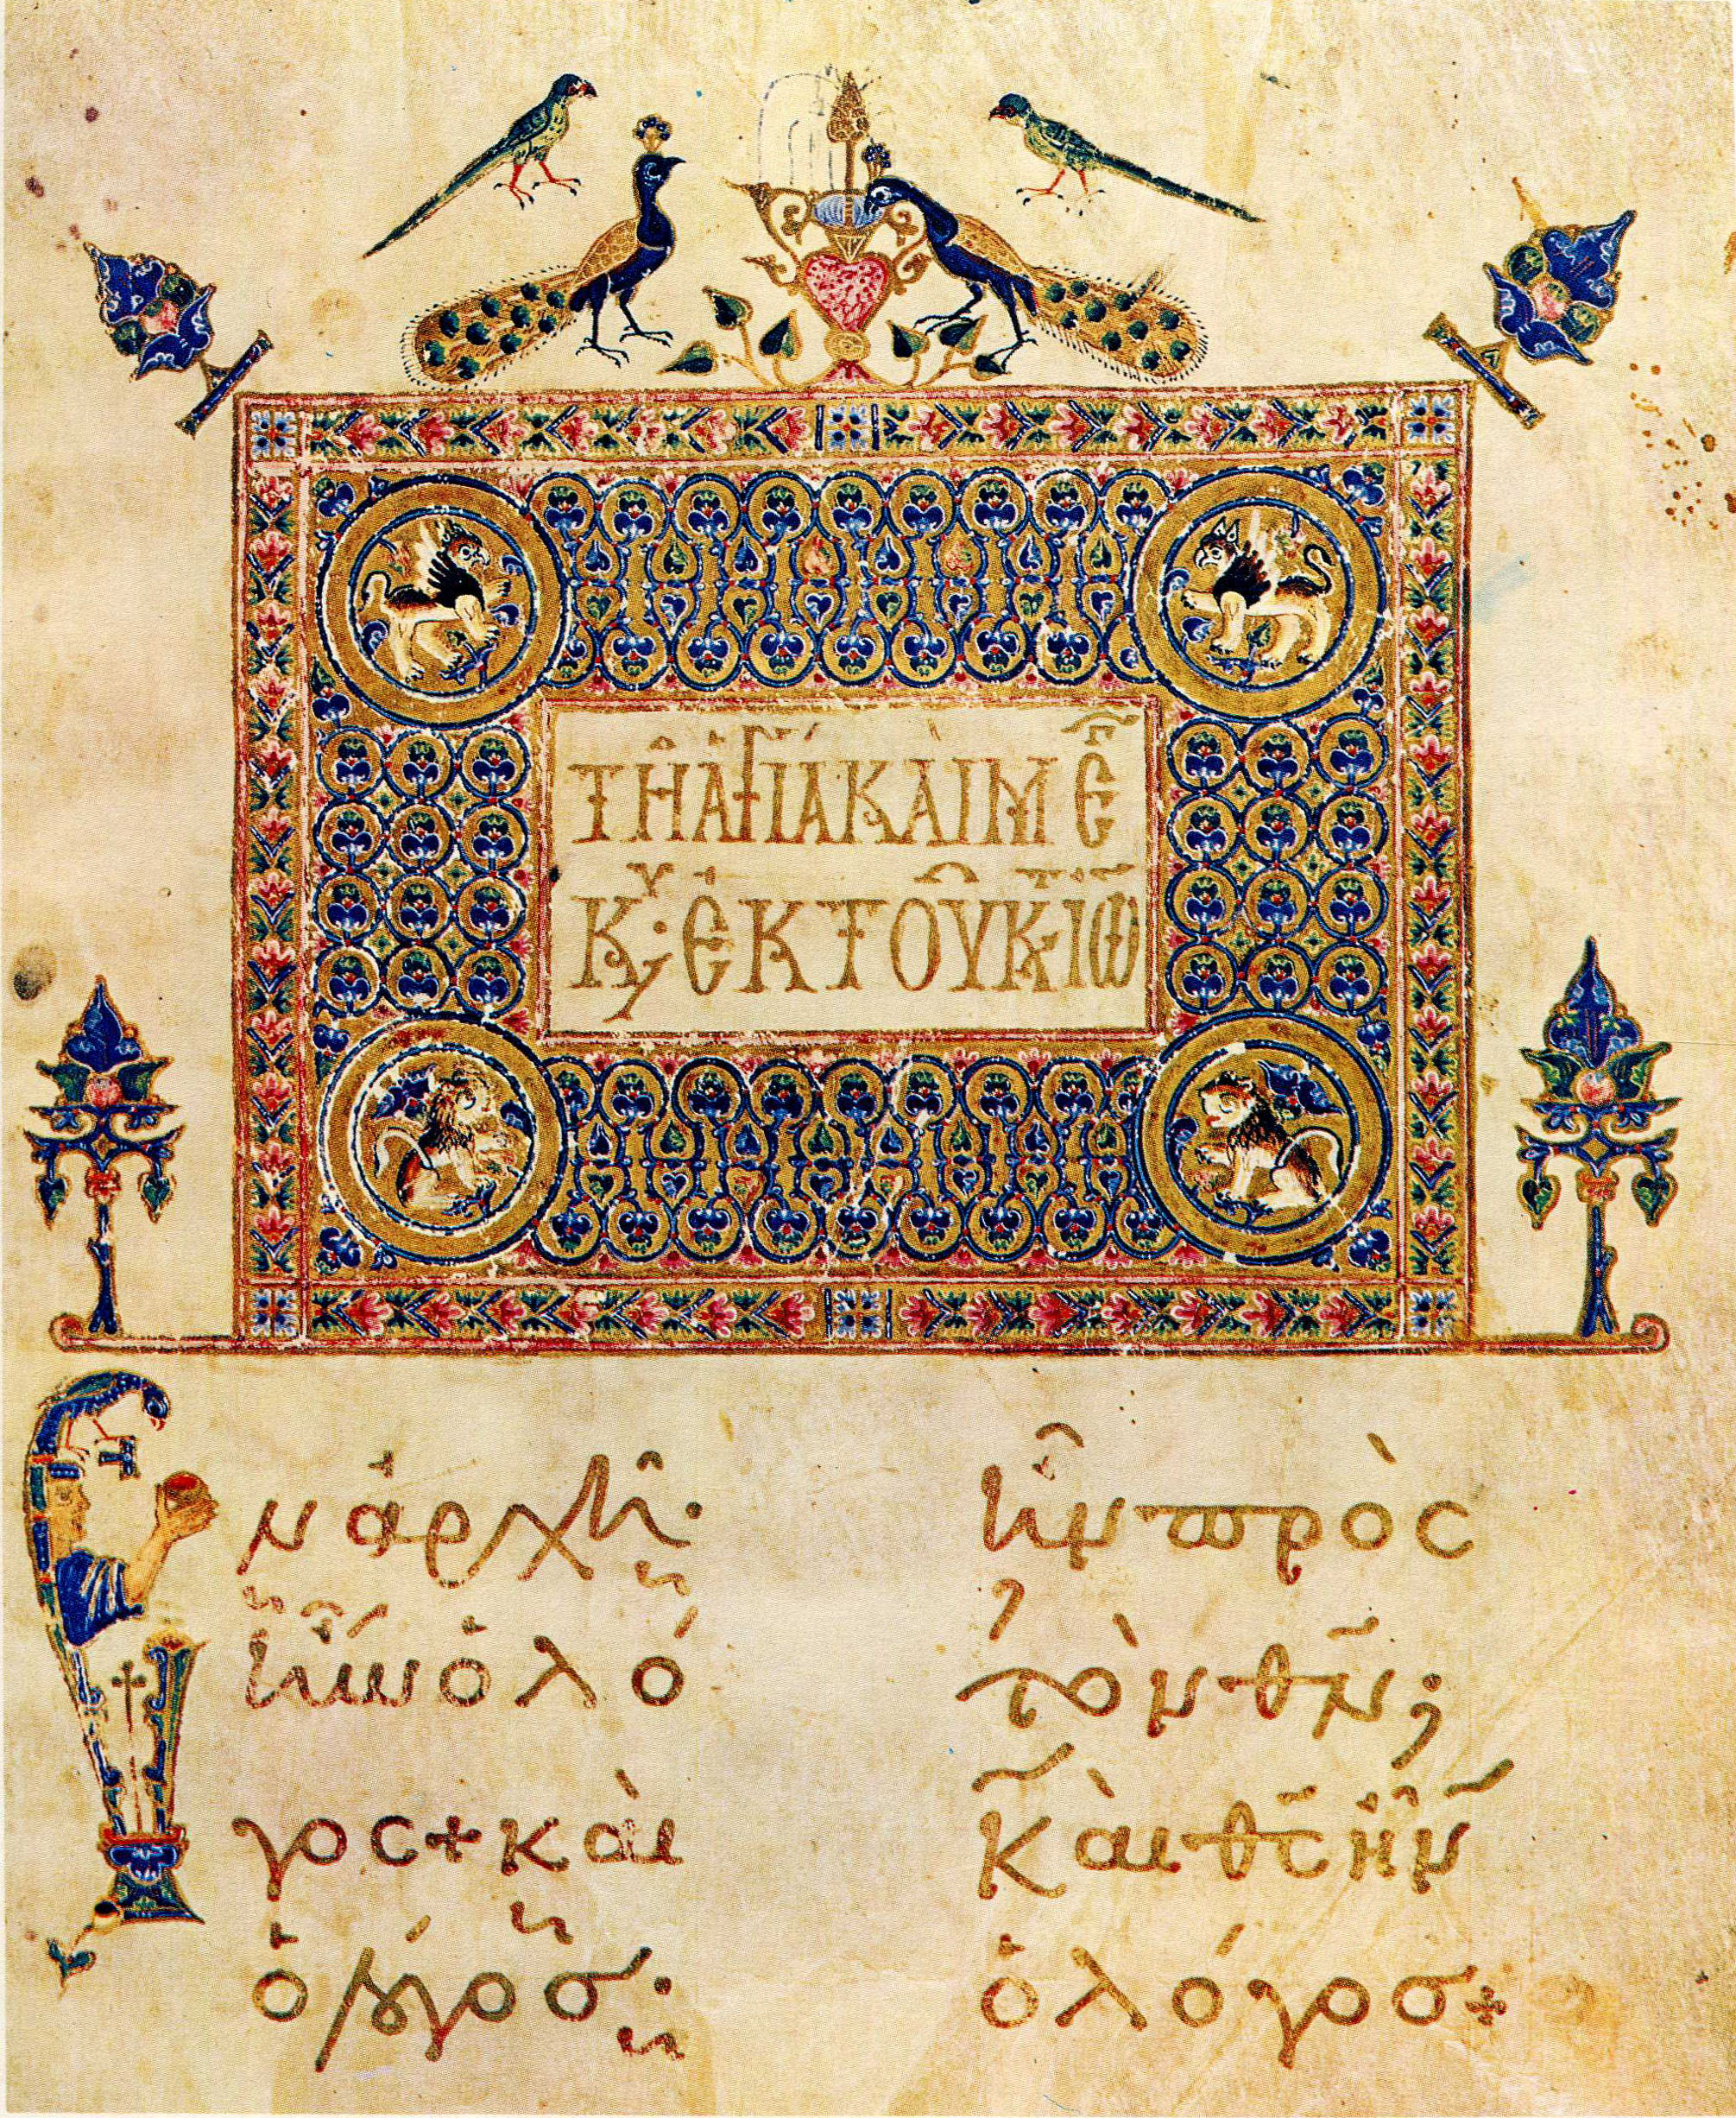 ΤῊ ἉΓΊΑ ΚΑῚ Μ Ε
Κ· ἘΚ ΤΟΥ͂ Κ ΙΩ
ν ἀρχῆ·
ἦν ὁ λό
γος + καὶ
ὁ λόγος·
ἦν πρὸς
τὸν θν̅;
καὶ θς̅ ἦν
ὁ λόγος +